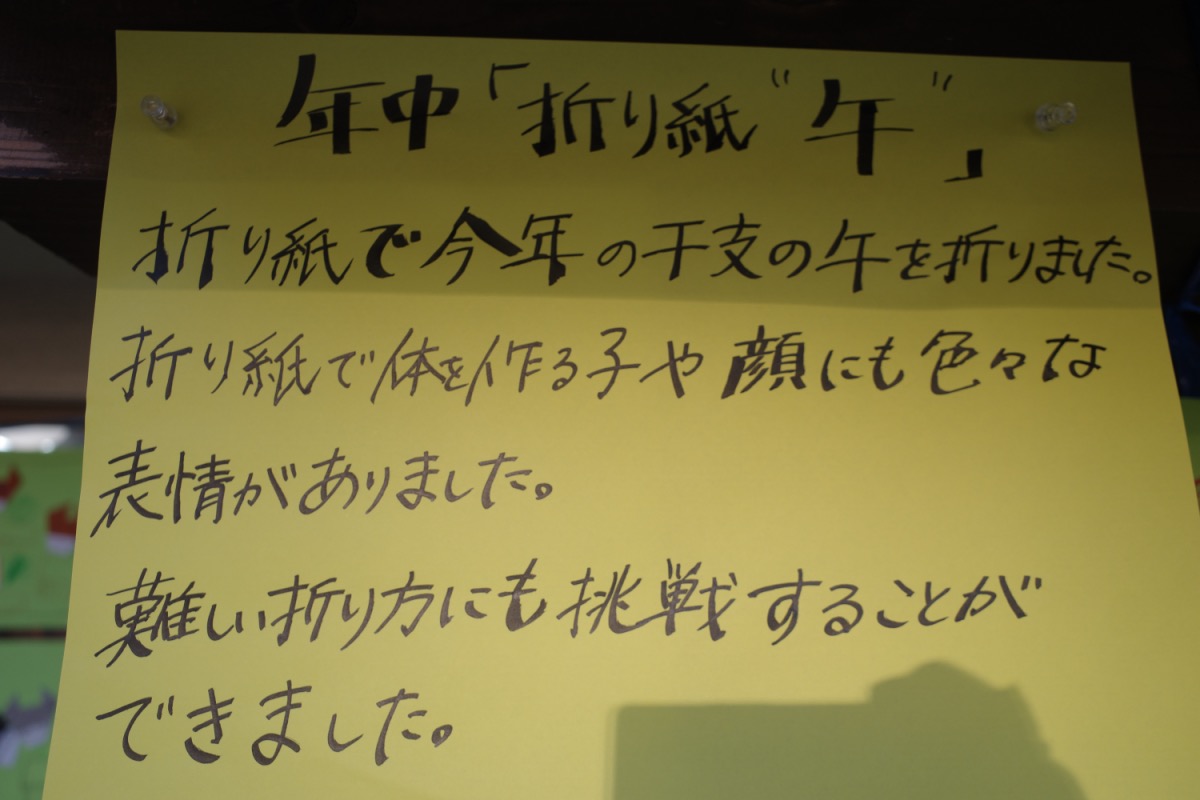 年中「折り紙"午"」
折り紙で今年の干支の午を折りました。
折り紙で体を作る子や顔にも色々な
表情がありました。
難しい折り方にも挑戦することが
できました。